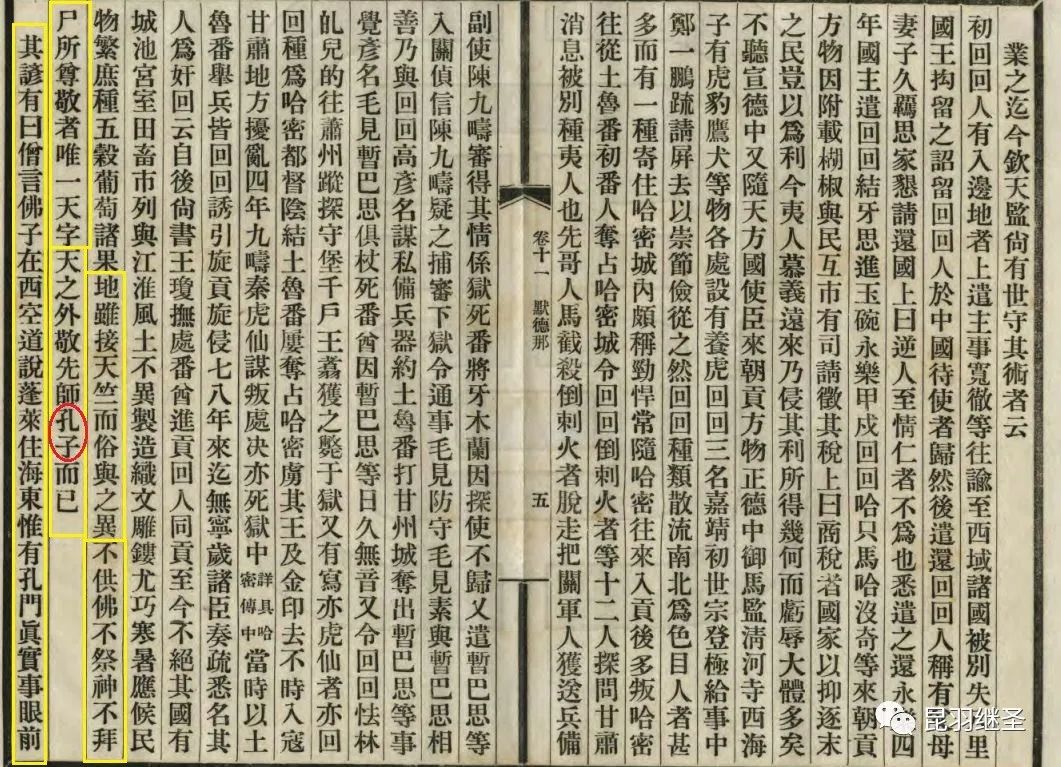 業之迄今欽天監尚有世守其術者云
初回回人有入邊地者上遣主事寬徹等往諭至西域諸國被別失八里
國王拘留之詔留回回人於中國待使者歸然後遣還回回人稱有父母
妻子久羈思家懇請還國上曰逆人至情仁者不為也悉遣之還永樂四
年國主遣回回結牙思進玉碗永樂甲戌回回哈只馬哈沒奇等來朝貢
方物因附載楜椒與民互市有司請徵其稅上曰商稅者國家以抑逐末
之民豈以為利今夷人慕義遠來乃侵其利所得幾何而虧辱大體多矣
不聽宣德中又隨天方國使臣來朝貢方物正德中御馬監清河寺西海
子有虎豹鷹犬等物各處設有養虎回回三名嘉靖初世宗登極給事中
鄭一鵬疏請屏去以崇節儉從之然回回種類散流南北為色目人者甚
多而有一種寄住哈密城內頗稱勁悍常隨哈密往來入貢後多叛哈密
往從土魯番初番人奪占哈密城令回回倒刺火者等十二人探問甘肅
消息被別種夷人也先哥人馬截殺倒刺火者脫走把關軍人獲送兵備
卷十一 默德那 五
副使陳九疇審得其情係獄死番將牙木蘭因探使不歸又遣暫巴思等
入關偵信陳九疇疑之捕審下獄令通事毛見防守毛見素與暫巴思相
善乃與回回高彥名謀私備兵器約土魯番打甘州城奪出暫巴思等事
覺彥名毛見暫巴思俱杖死番酋因暫巴思等日久無音又令回回怯林
乩兒的往蕭州蹤探守堡千戶王翥獲之斃于獄又有寫亦虎仙者亦回
回種為哈密都督陰結土魯番屢奪占哈密虜其王及金印去不時入寇
甘肅地方擾亂四年九疇秦虎仙謀叛處決亦死獄中詳具哈密傳中當時以土
魯番舉兵皆回回誘引旋貢旋侵七八年來迄無寧歲諸臣奏疏悉名其
人為奸回云自後尚書王瓊撫處番酋進貢回人同貢至今不絕其國有
城池宮室田畜市列與江淮風土不異製造織文雕鏤尤巧寒暑應候民
物繁庶種五穀葡萄諸果地雖接天竺而俗與之異不供佛不祭神不拜
尸所尊敬者唯一天字天之外敬先師孔子而已
其諺有曰僧言佛子在西空道說蓬萊住海東惟有孔門眞實事眼前
昆羽继圣